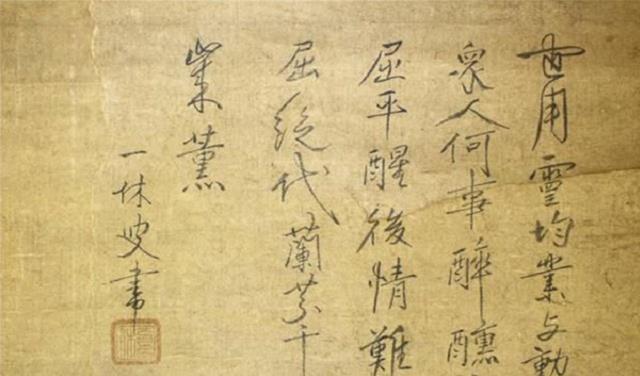 世用靈均業与勳
衆人何事醉醺
屈平醒後情難
屈絶代蘭芬千
薫
一休叟書